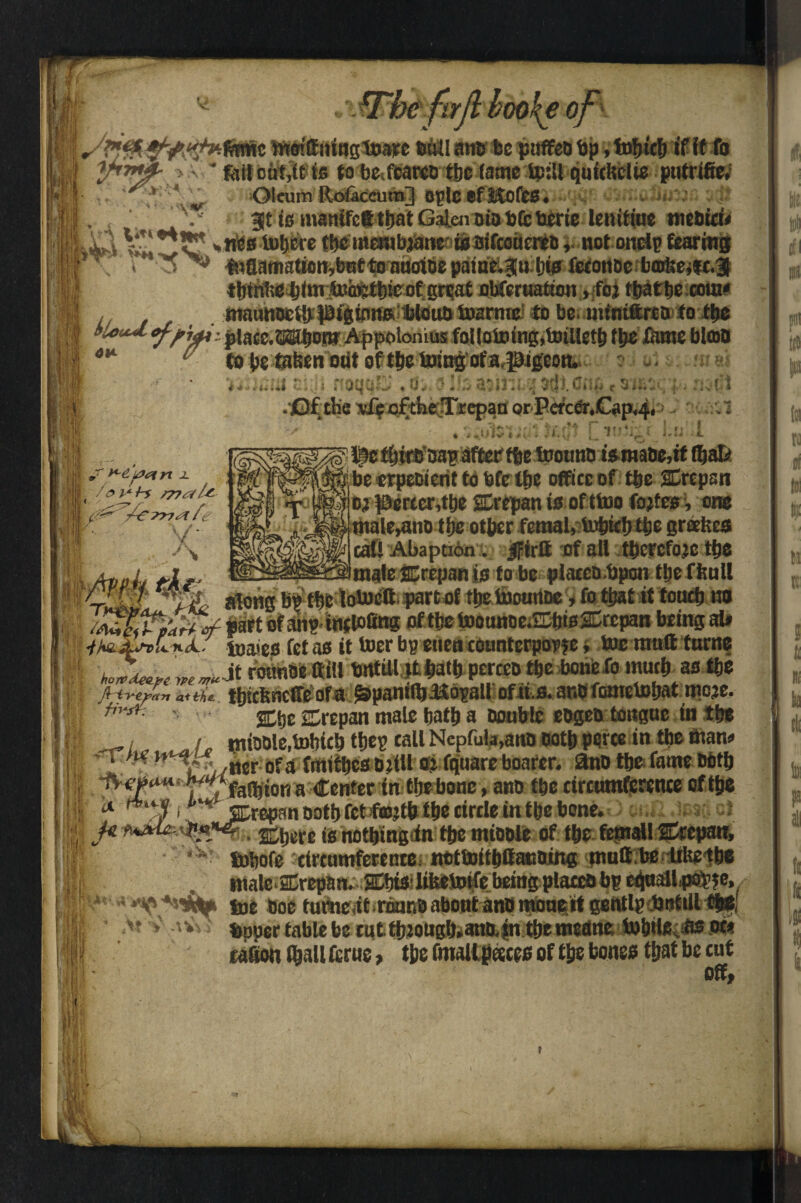 The first booke of
same moistning ware dull and be puffed up, which if it so
fall out, it is to be feared the same will quickelie putrifie.
Oleum Rosaceum] oyle of Roses.
It is manifest that Galen did use verie lenitive medici-
nes where the membrane is discovered, not onely fearing
inflamation, but to avoide paine. In his seconde booke, &c. I
thinke him worthie of great observation, for that he com-
maundeth Pigions bloud warme to be ministred to the
place. Whom Appolonius following, willeth the same blood
to be taken out of the wing of a Pigeon.
Of the use of the Trepan or Percer. Cap. 4.
The third day after the wound is made, it shall
be expedient to use the office of the Trepan
or Percer, the Trepan is of two sortes, one
male, and the other femal, which the greekes
call Abaption. First of all therefore the
male Trepan is to be placed upon the skull
along by the lowest part of the wounde, so that it touch no
part of any inclosing of the wounde. This Trepan being al-
waies set as it wer by even counterpoyse, we must turne
it rounde still untill it hath perced the bone so much as the
thicknesse of a Spanish Royall of ii.s. and somewhat more.
The Trepan male hath a double edged tongue in the
middle, which they call Nepsula, and doth perce in the man-
ner of a smithes drill or square boarer. And the same doth
fashion a Center in the bone, and the circumference of the
Trepan doth set foorth the circle in the bone.
There is nothing in the middle of the femall Trepan,
whose circumference notwithstanding must be like the
male Trepan. This likewise being placed by equall poyse,
we doe turne it round about and move it gently untill the
upper table be cut through, and in the meane while, as oc-
casion shall serve, the small peeces of the bones that be cut
off,
bloud of pigi-
on
Trepan 2
sorts male
female
Apply the
Trepan
part of
the
how deepe we must
trepan at the
first.
The male
Trepan